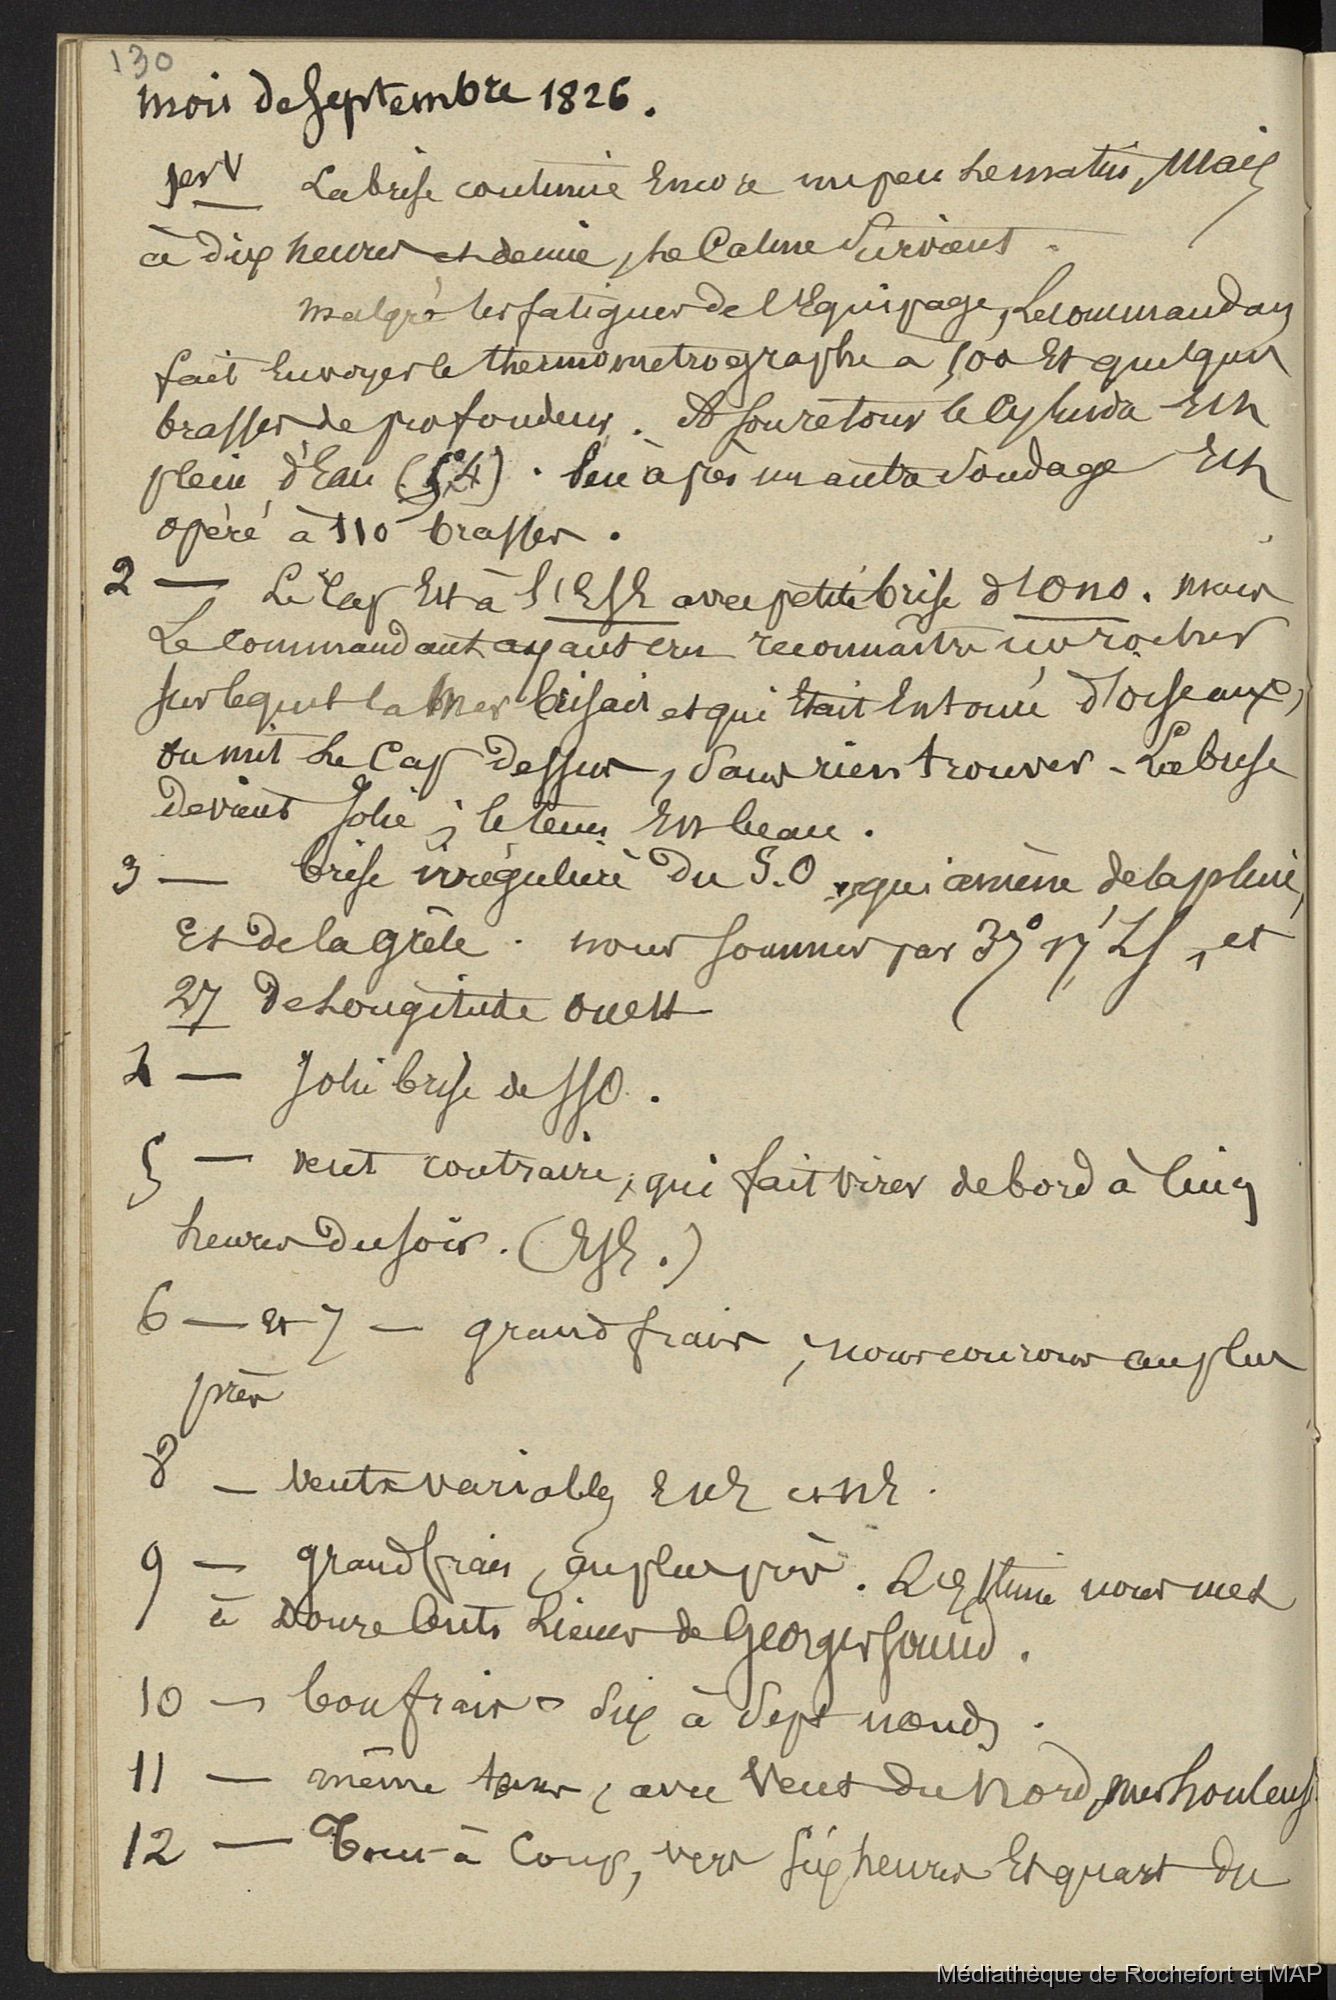 130
mois de Septembre 1826.
1er La brise continue Encore un peu Le matin, Mais
à dix heures et demie, Le Calme Survient.
Malgré les fatigues de l'Equipage, Le commandant
fait Envoyer le thermometrographe à 500 Et quelques
brasses de profondeur. A Son retour le Cylindre Est
plein d'Eau (5°,4). Peu après un autre Sondage Est
opéré à 110 brasses.
2 — Le Cap Est à l'ESE avec petite brise d'ONO. mais
Le commandant ayant cru reconnaître un rocher
sur lequel la Mer brisait et qui Etait Entouré d'oiseaux,
on mit Le Cap Dessus, Sans rien trouver. La brise
Devient Jolie ; le tems Est beau.
3 — brise irrégulière Du S.O qui amène de la pluie,
Et de la grêle. nous sommes par 37° 17' LS, et
27 De Longitude ouest
4 — Jolie brise de SSO.
5 — vent contraire, qui fait virer de bord à Cinq
heures Du soir. (ESE.)
6 — Et 7 — grand frais, nous courons au plus
près
8 — Vents variables ENE et NE.
9 — grand frais, au plus près. L'Estime nous met
à Douze Cents Lieues de Georges Sound.
10 — bon frais Six à Sept noeuds.
11 — même tems, avec Vent du Nord, Mer houleuse.
12 — Tout à Coup, vers Six heures Et quart du
Médiathèque de Rochefort et MAP